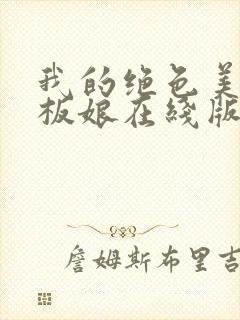 我的绝色美
板娘在綫版
詹姆斯布里吉